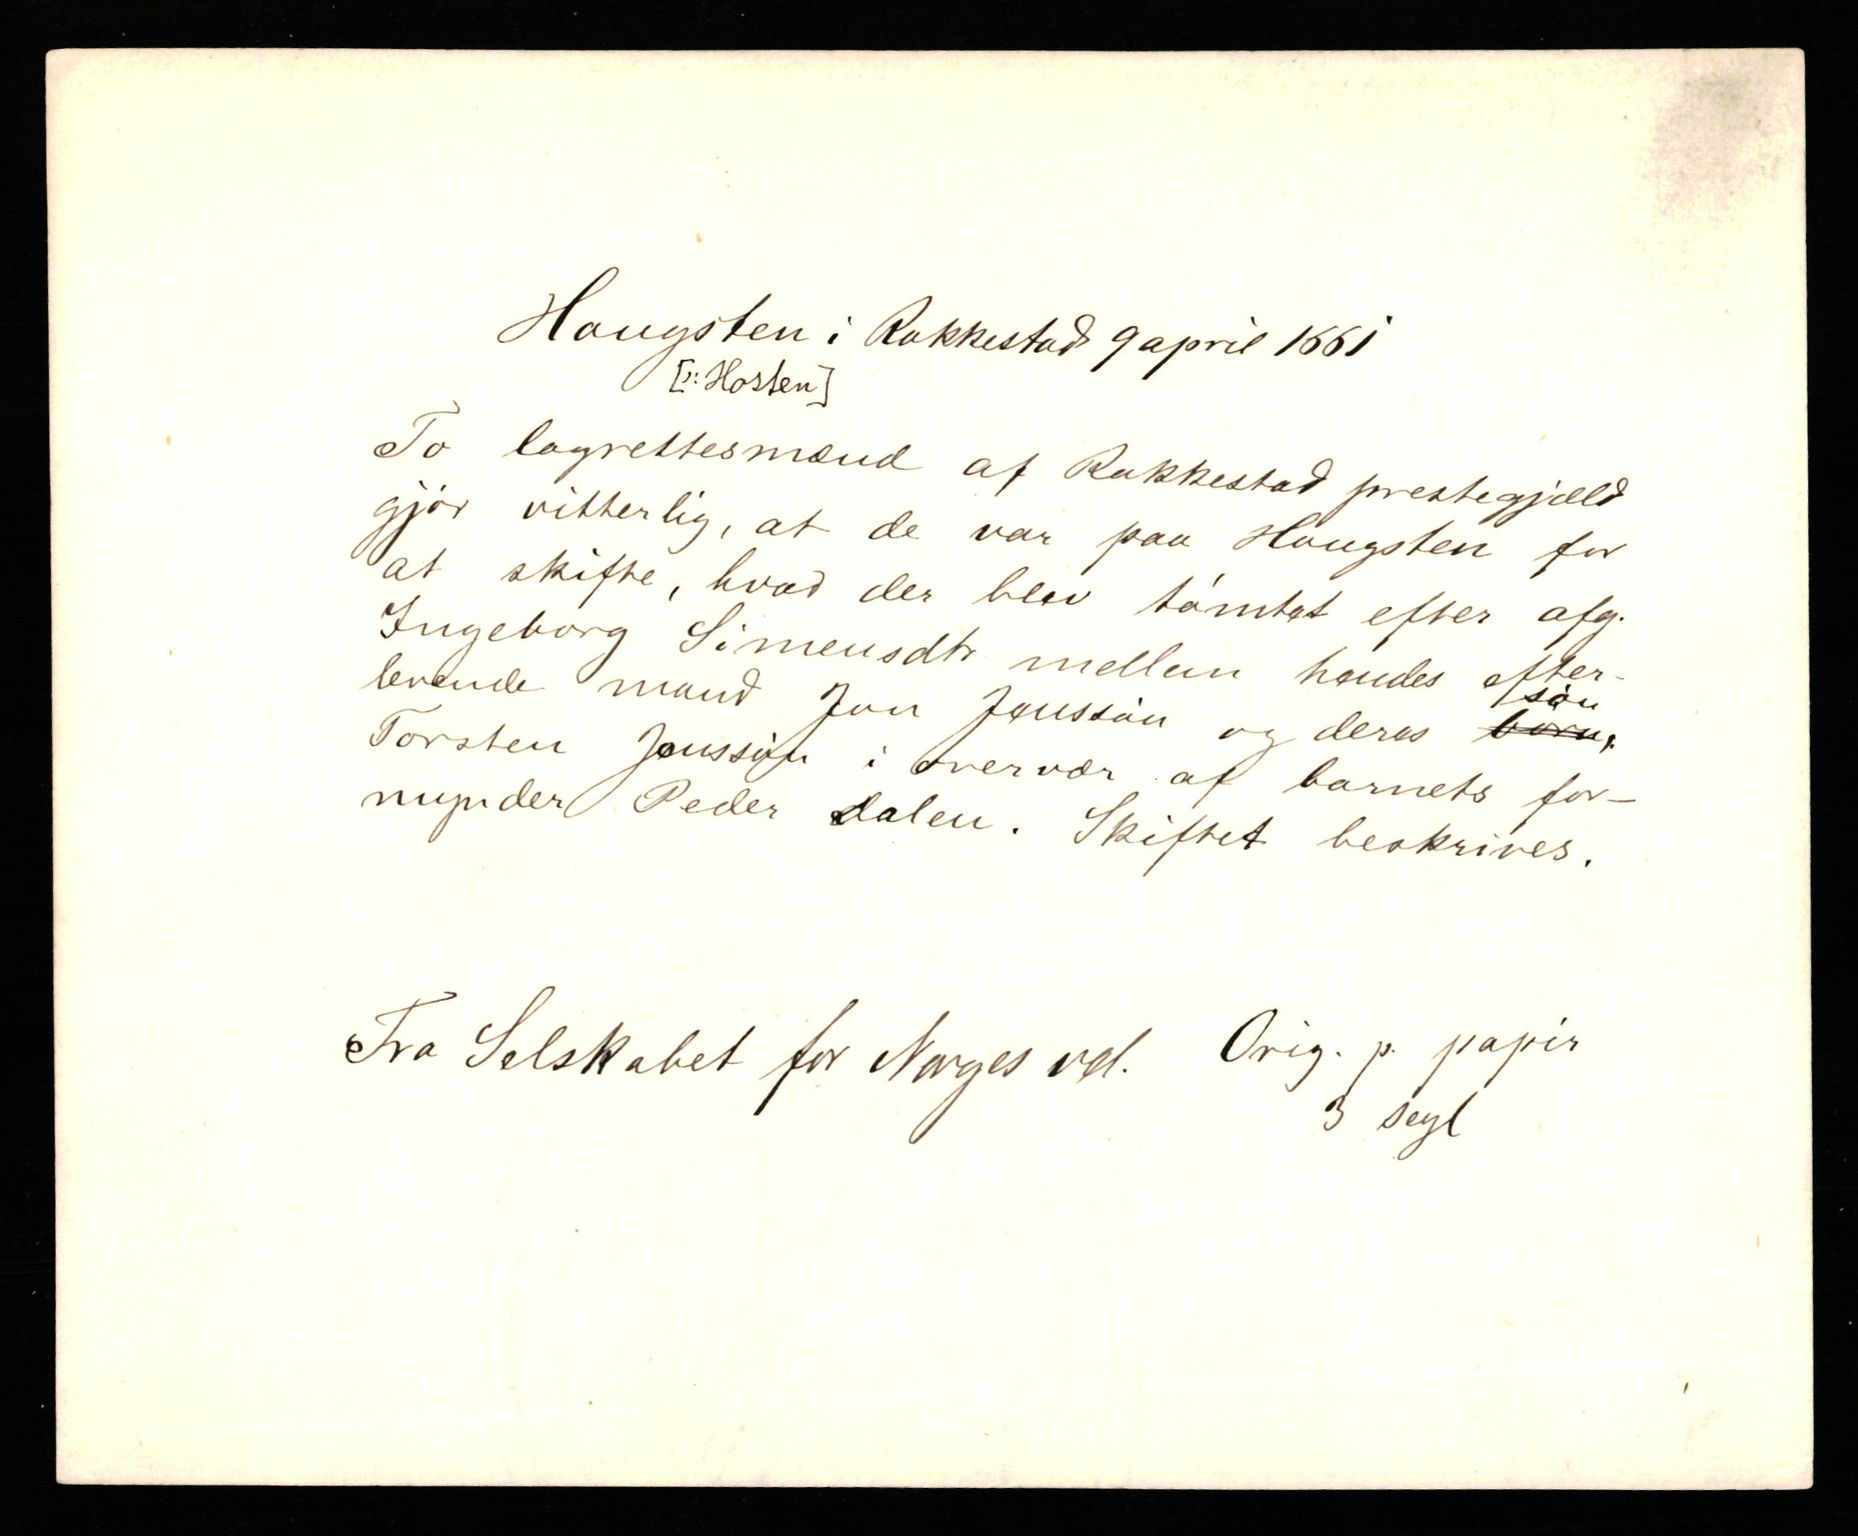 Haugsten i Rakkestad 9 april 1661
[ɔ: Hosten]
To lagrettesmænd af Rakkestad prestegjæld
gjør vitterlig, at de var paa Haugsten for
at skifte, hvad der blev tømtet efter afg.
Ingeborg Simensdtr mellem hendes efter-
levende mand Jon Jonssøn og deres søn
Torsten Jonssøn i overvær af barnets for-
mynder Peder Dalen. Skiftet beskrives.
Fra Selskabet for Norges vel. Orig. p. papir
3 segl